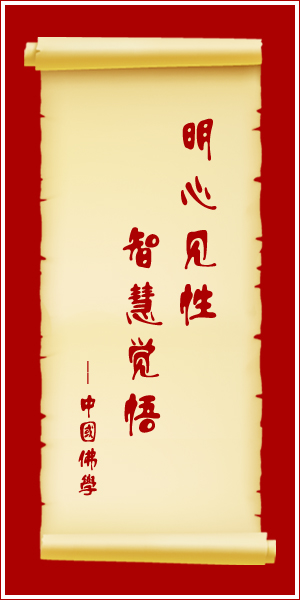 明心见性
智慧觉悟
—中國佛學